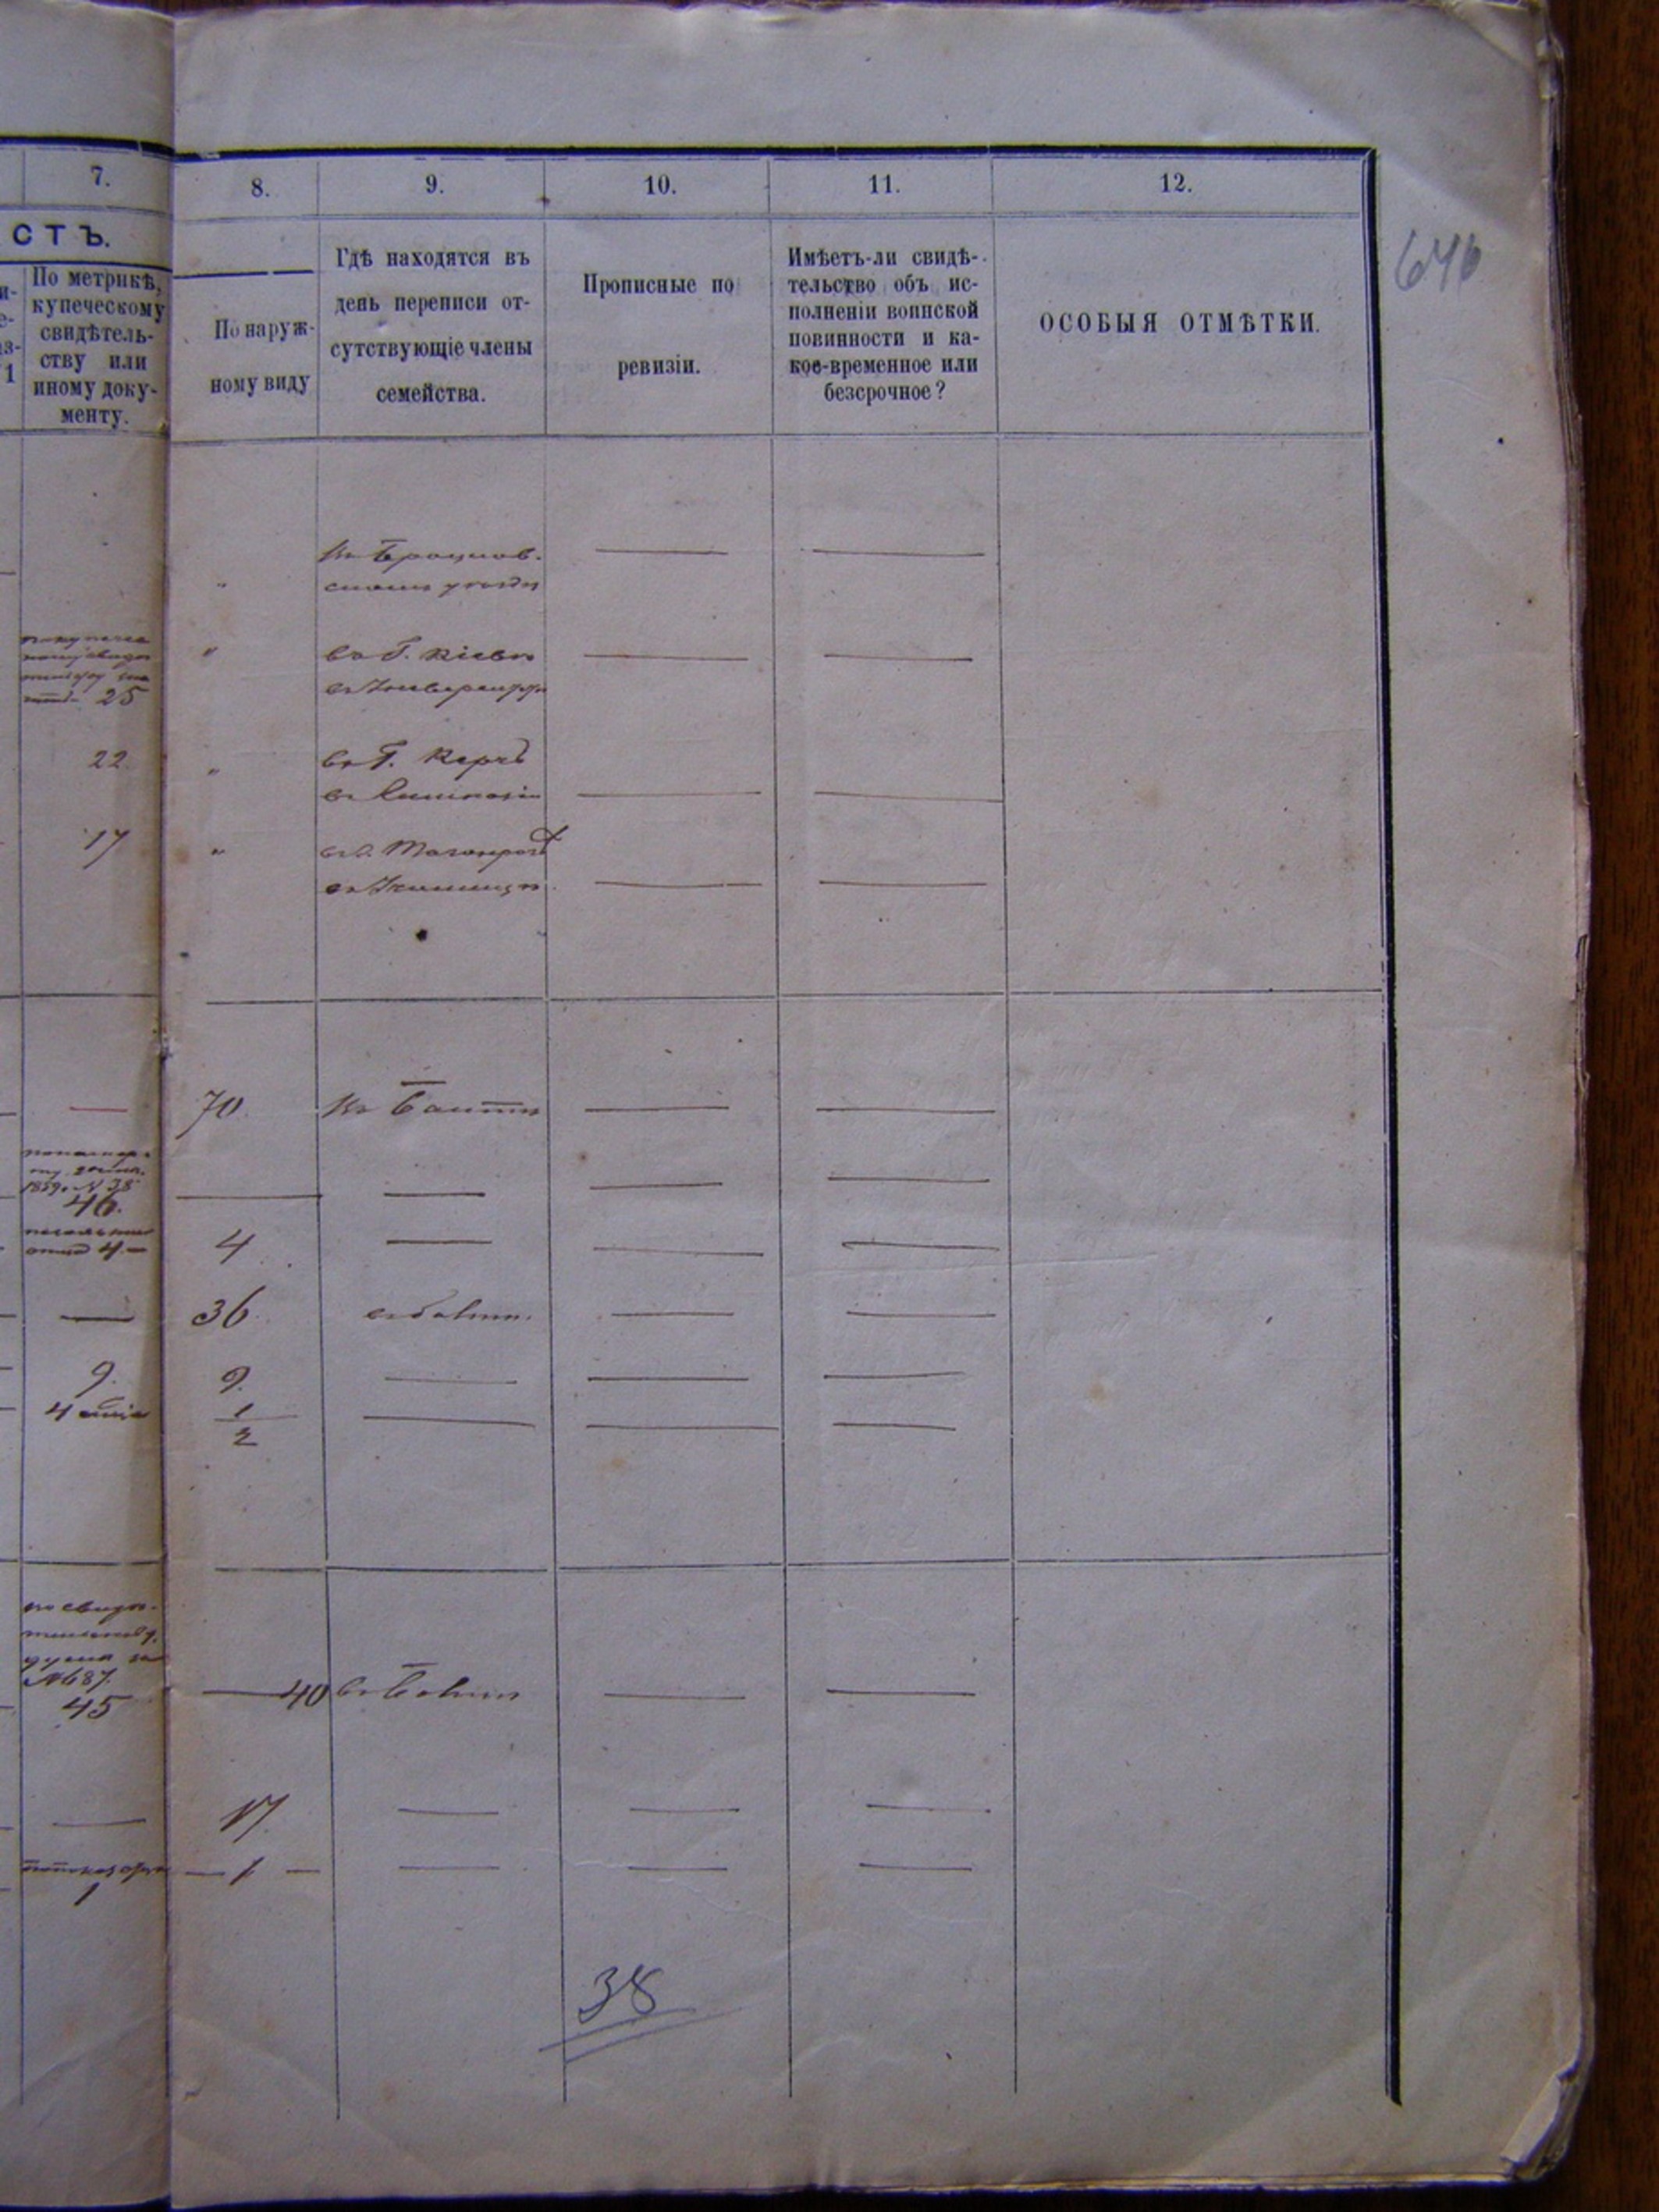 7.
8.
9.
10.
11.
12.
СТЪ.
По метрикѣ,
купеческому
свидѣтель-
ству или
иному доку-
менту.
По наруж-
ному виду
Гдѣ находятся въ
день переписи от-
сутствующіе члены
семейства.
Прописные по
ревизіи.
Имѣетъ-ли свидѣ-
тельство объ ис-
полненіи воинской
повинности и ка-
кое-временное или
безсрочное?
ОСОБЫЯ ОТМѢТКИ.
646
Въ Брацлав-
скомъ уѣздѣ
25
въ Г. Кіевѣ
въ Университ
22
въ Г. Керчь
въ Гимназіи
17
въ Г. Таганрогѣ
70
Въ Балтѣ
1859 № 38
46.
4
4
36
въ Балтѣ.
9.
9.
4
1
2
№687.
45
40
въ Балтѣ
17
1
1
38